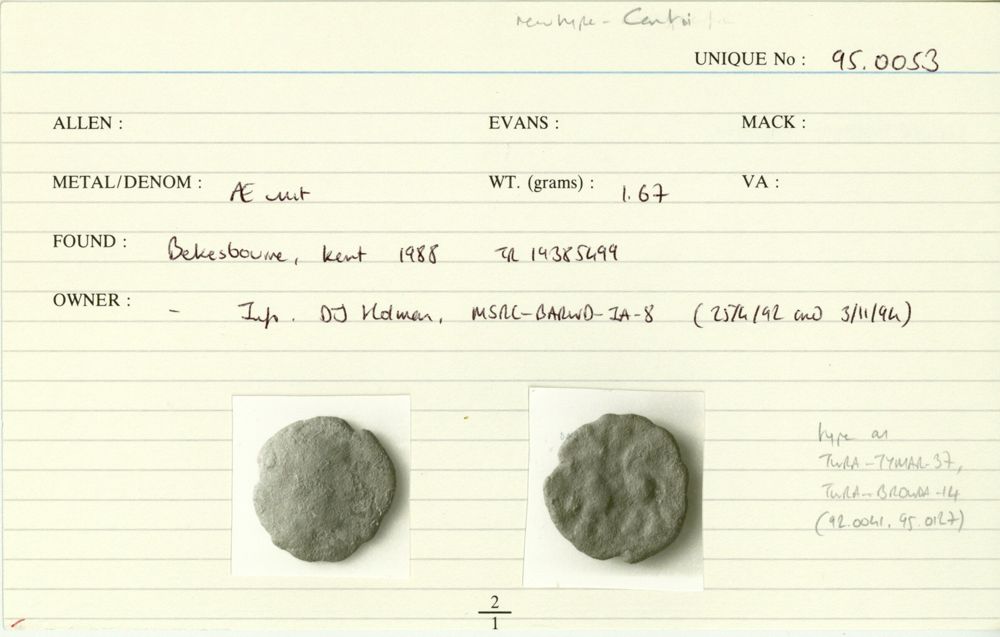 new type - Cantii
UNIQUE No : 95.0053
ALLEN : EVANS : MACK :
METAL/DENOM : Æ unit WT. (grams) : 1.67 VA :
FOUND : Bekesbourne, Kent 1988 TR 19385499
OWNER : - Inf. DJ Holman, MSRC-BARWD-IA-8 (25/4/92 and 3/11/94)
type as
TWRA-TYMAR-37,
TWRA-BROWDA-14
(92.0041, 95.0127)
2
1